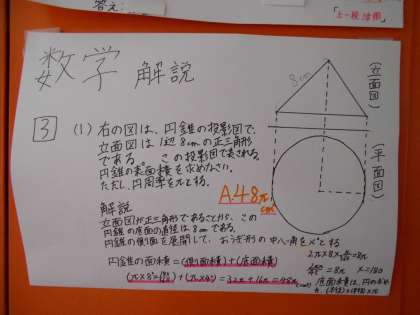 答え:
数学 解説
3 (1) 右の図は、円錐の投影図で、
立面図は1辺8cmの正三角形
である。この投影図で表される
円錐の表面積を求めなさい。
ただし、円周率をπとする。
A.48πcm²
解説
立面図が正三角形であることから、この
円錐の底面の直径は8cmである。
円錐の側面を展開して、おうぎ形の中心角をx°とする
円錐の表面積=(側面積)+(底面積)
=32π+16π=48π(cm²)
8cm
(立面図)
(平面図)
x=180
底面積は、円の求め